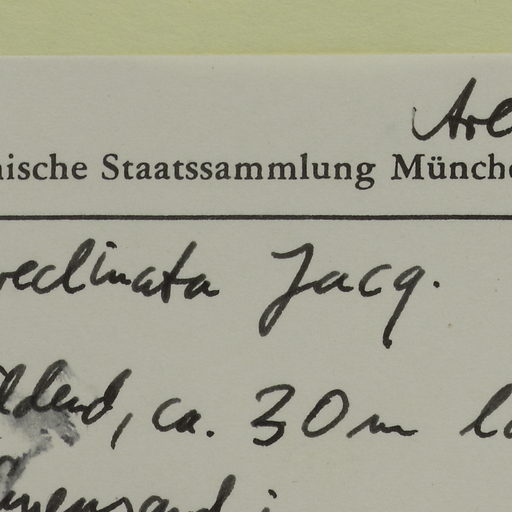 Are
nische Staatssammlung Münche
reclinata Jacq.
ldend, ca. 30m